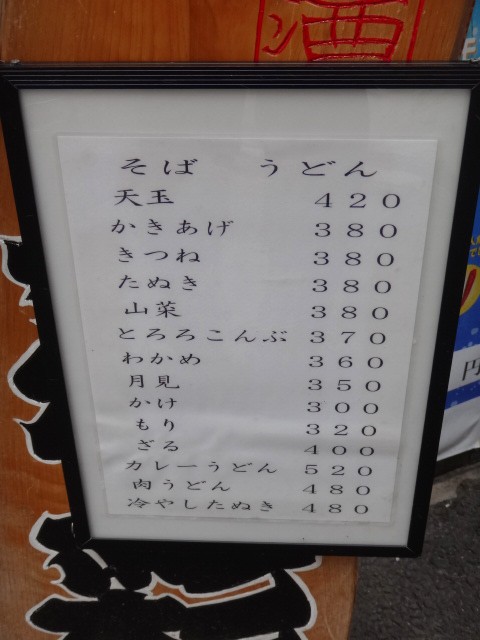 酒
そば うどん
天玉 420
かきあげ 380
きつね 380
たぬき 380
山菜 380
とろろこんぶ 370
わかめ 360
月見 350
かけ 300
もり 320
ざる 400
カレーうどん 520
肉うどん 480
冷やしたぬき 480
円